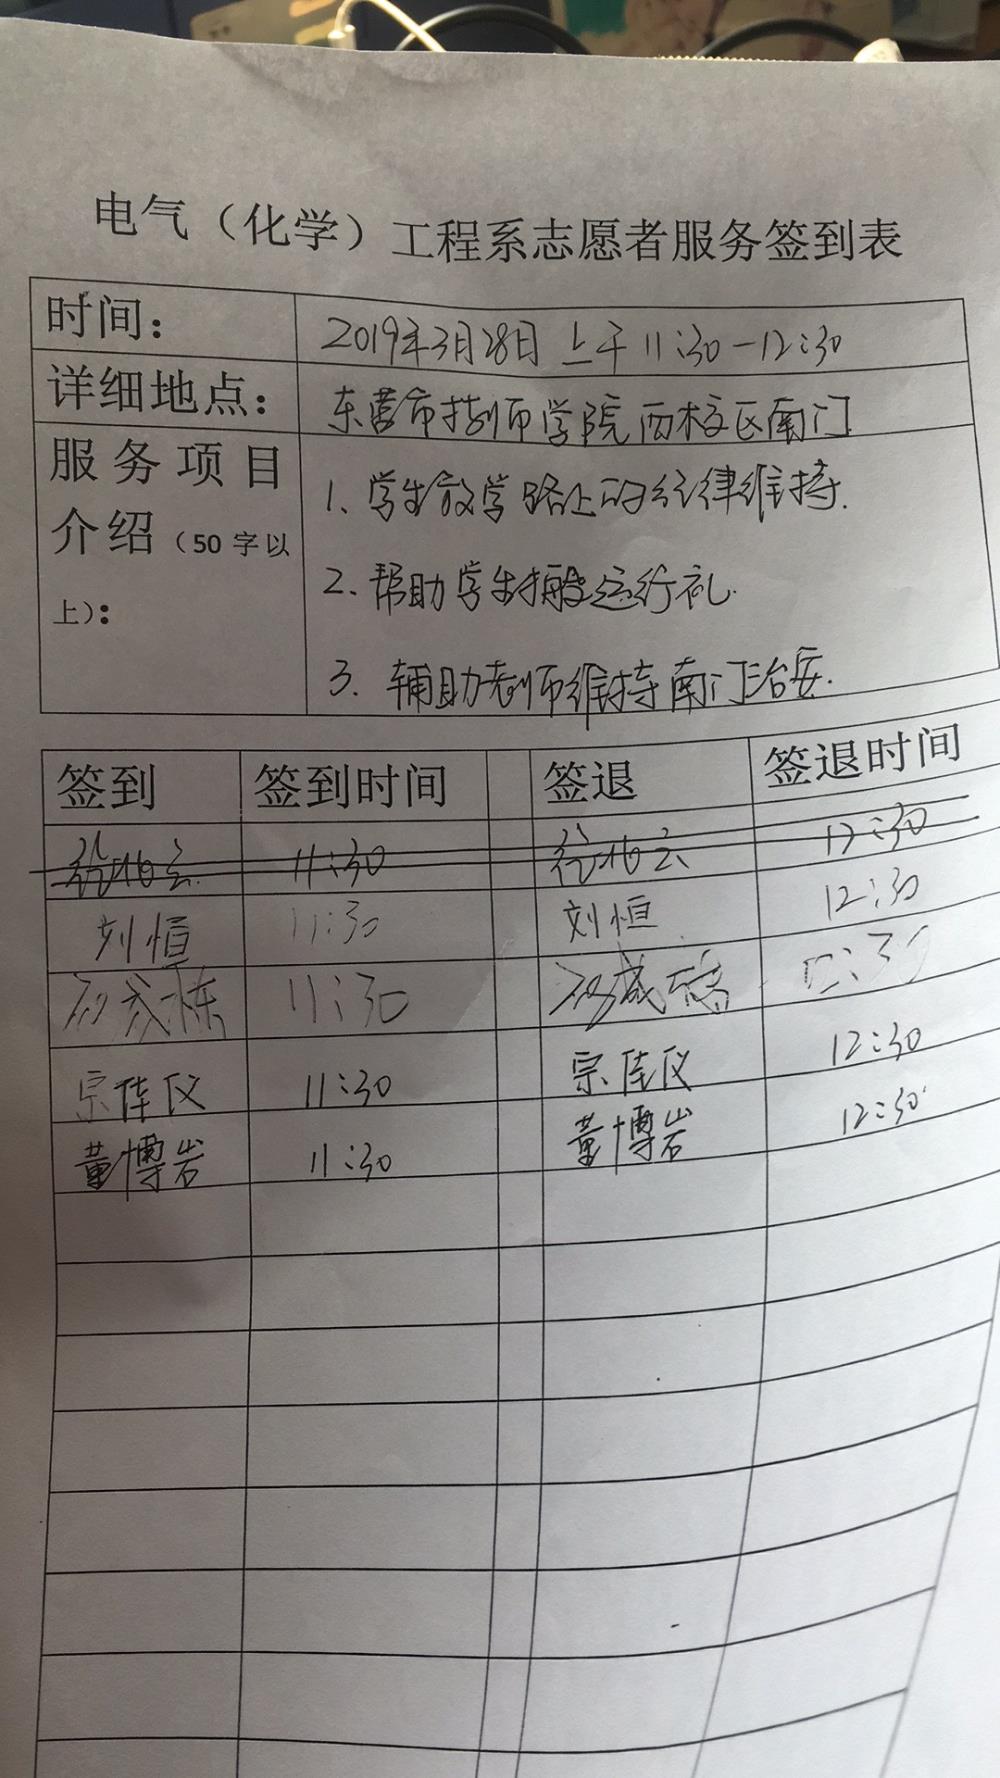 电气（化学）工程系志愿者服务签到表
时间： 2019年3月28日 上午 11:30-12:30
详细地点： 东营市技师学院西校区南门
服务项目介绍（50字以上）：
1、学生放学路上的纪律维持.
2、帮助学生搬运行礼.
3、辅助老师维持南门治安.
签到 签到时间 签退 签退时间
11:30 12:30
刘恒 11:30 刘恒 12:30
11:30 12:30
宗佳仪 11:30 宗佳仪 12:30
董博岩 11:30 董博岩 12:30